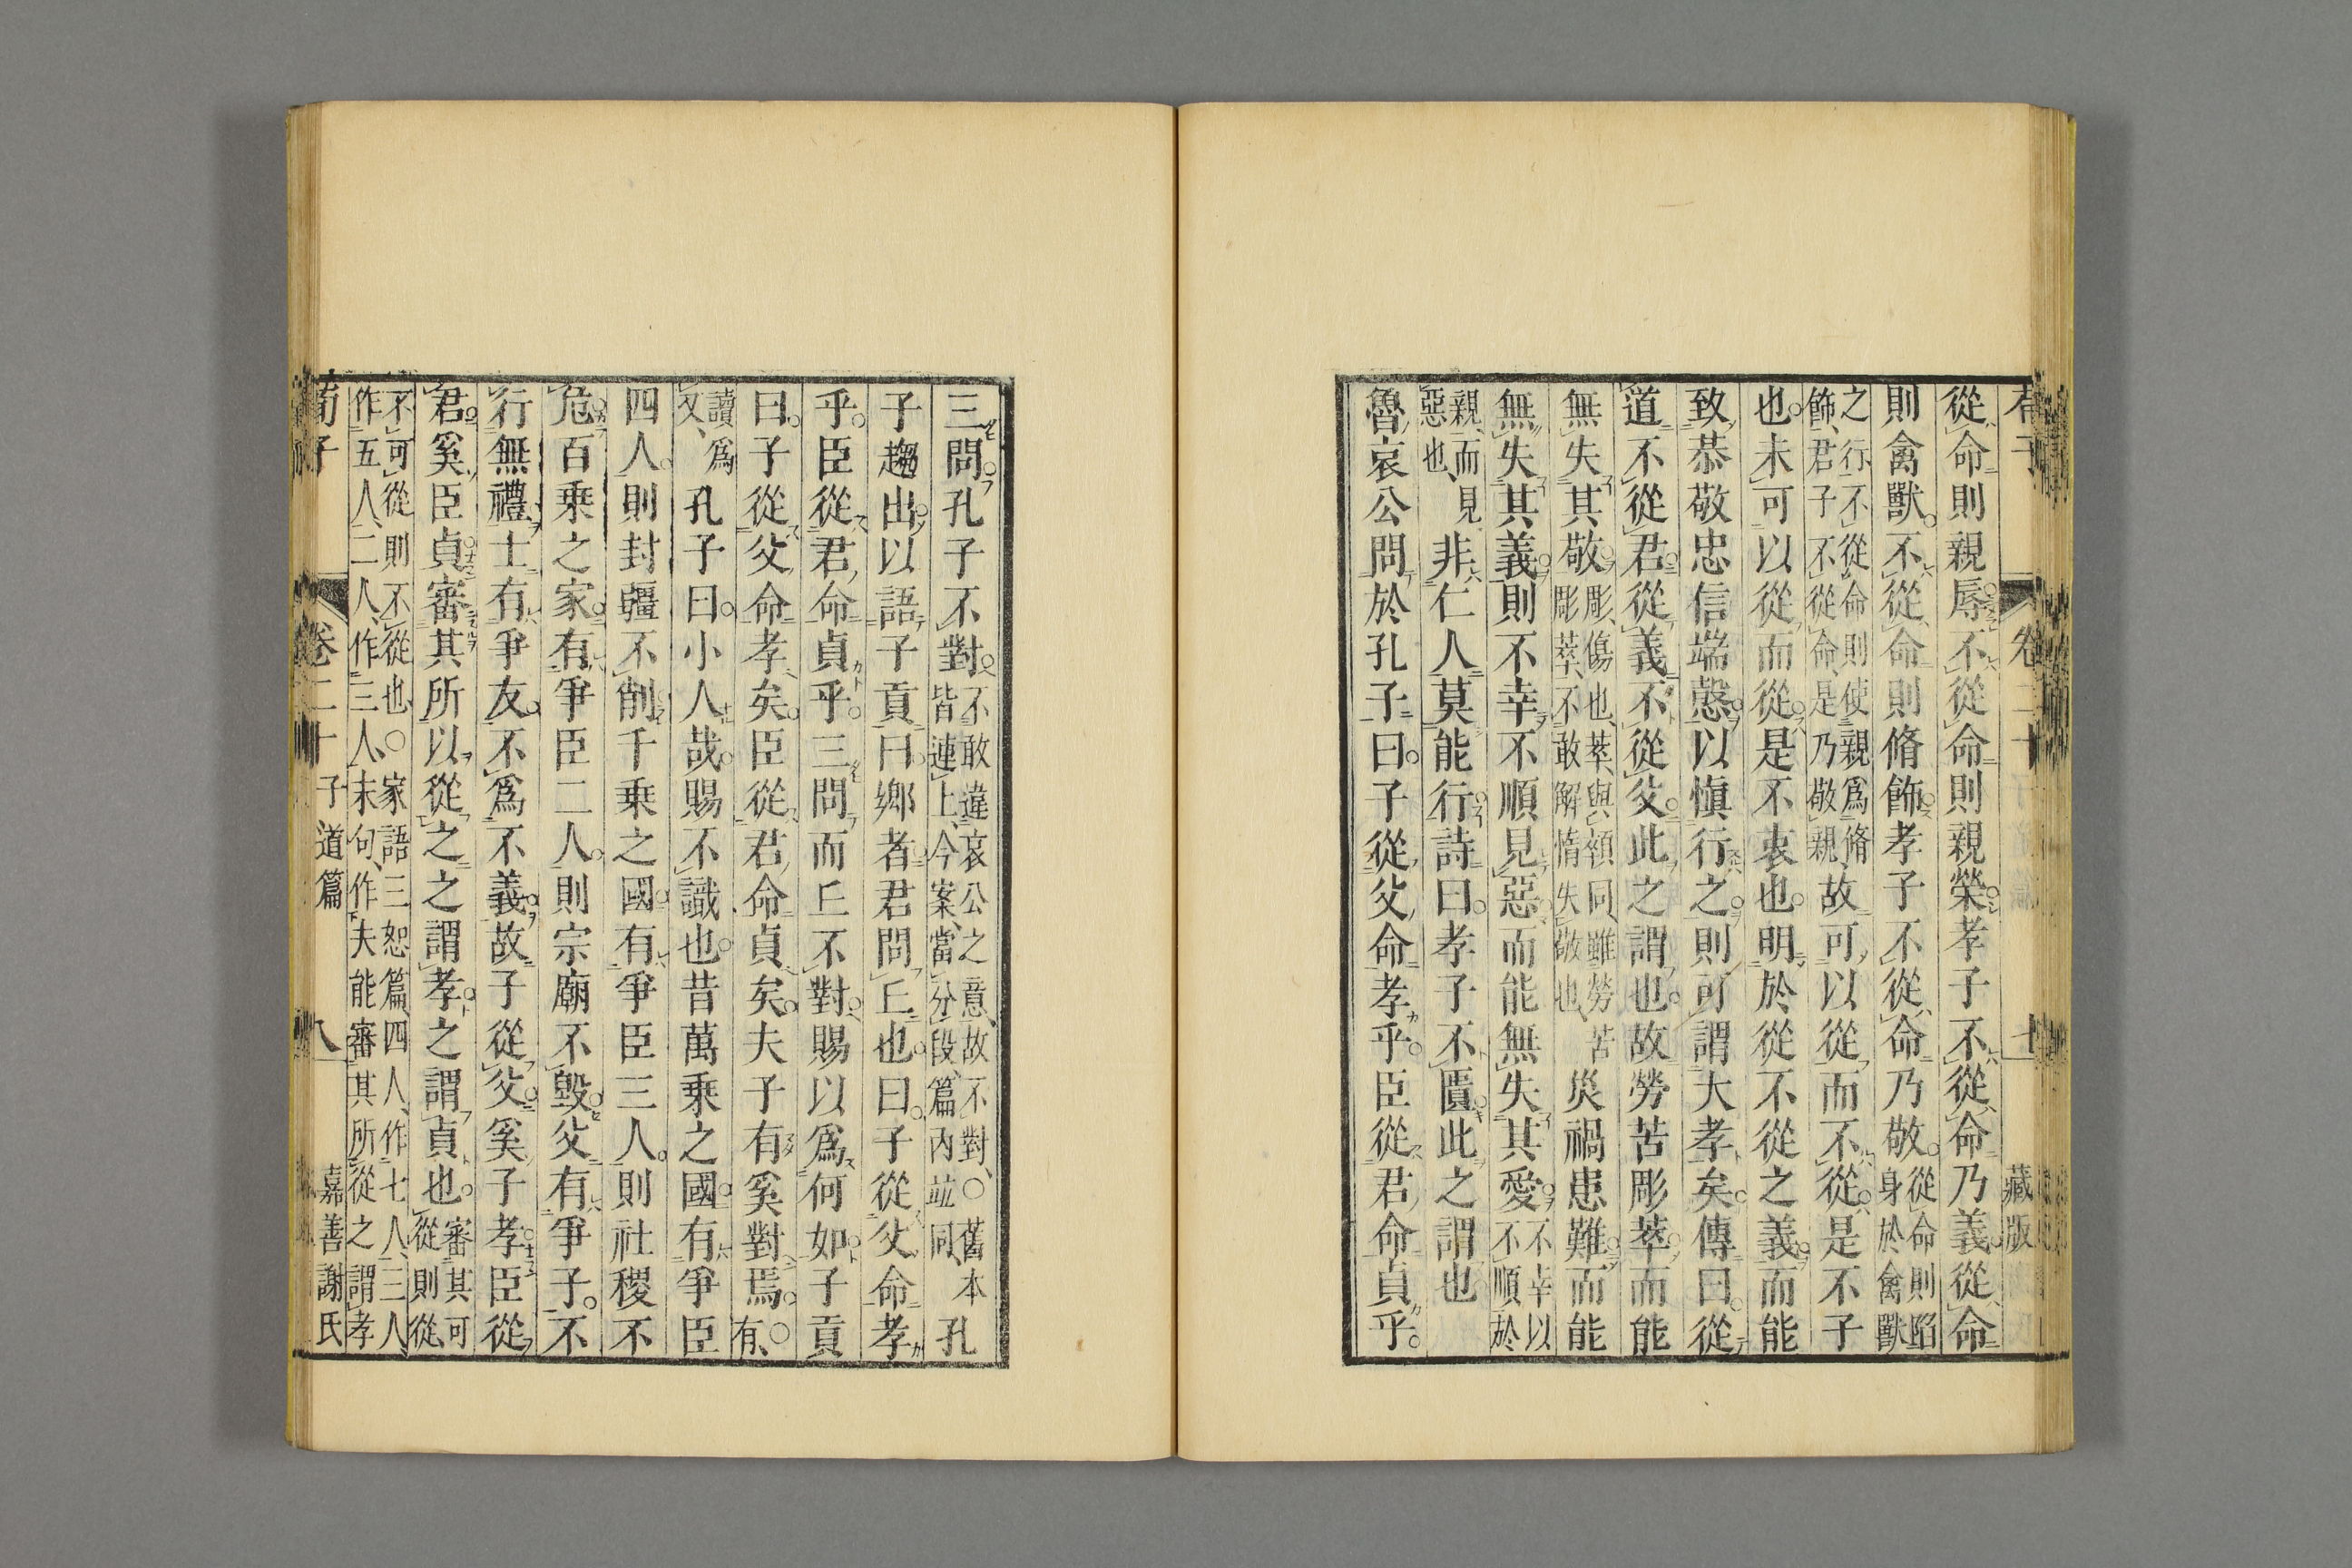 荀子 卷二十 七 藏版
從命則親辱不從命則親榮孝子不從命乃義從命
則禽獸不從命則脩飾孝子不從命乃敬從命則陷身於禽獸
之行不從命則使親爲脩飾君子不從命是乃敬親故可以從而不從是不子
也未可以從而從是不衷也明於從不從之義而能
致恭敬忠信端慤以愼行之則可謂大孝矣傳曰從
道不從君從義不從父此之謂也故勞苦彫萃而能
無失其敬彫傷也萃與顇同雖勞苦彫萃不敢解惰失敬也災禍患難而能
無失其義則不幸不順見惡而能無失其愛不幸以不順於
親而見惡也非仁人莫能行詩曰孝子不匱此之謂也
魯哀公問於孔子曰子從父命孝乎臣從君命貞乎
三問孔子不對不敢違哀公之意故不對〇舊本皆連上今案當分段篇內竝同孔
子趨出以語子貢曰鄉者君問丘也曰子從父命孝
乎臣從君命貞乎三問而丘不對賜以爲何如子貢
曰子從父命孝矣臣從君命貞矣夫子有奚對焉〇有
讀爲又孔子曰小人哉賜不識也昔萬乘之國有爭臣
四人則封疆不削千乘之國有爭臣三人則社稷不
危百乘之家有爭臣二人則宗廟不毀父有爭子不
行無禮士有爭友不爲不義故子從父奚子孝臣從
君奚臣貞審其所以從之之謂孝之謂貞也審其可從則從
不可從則不從也〇家語三恕篇四人作七人三人作五人二人作三人末句作夫能審其所從之謂孝
荀子 卷二十 子道篇 八 嘉善謝氏